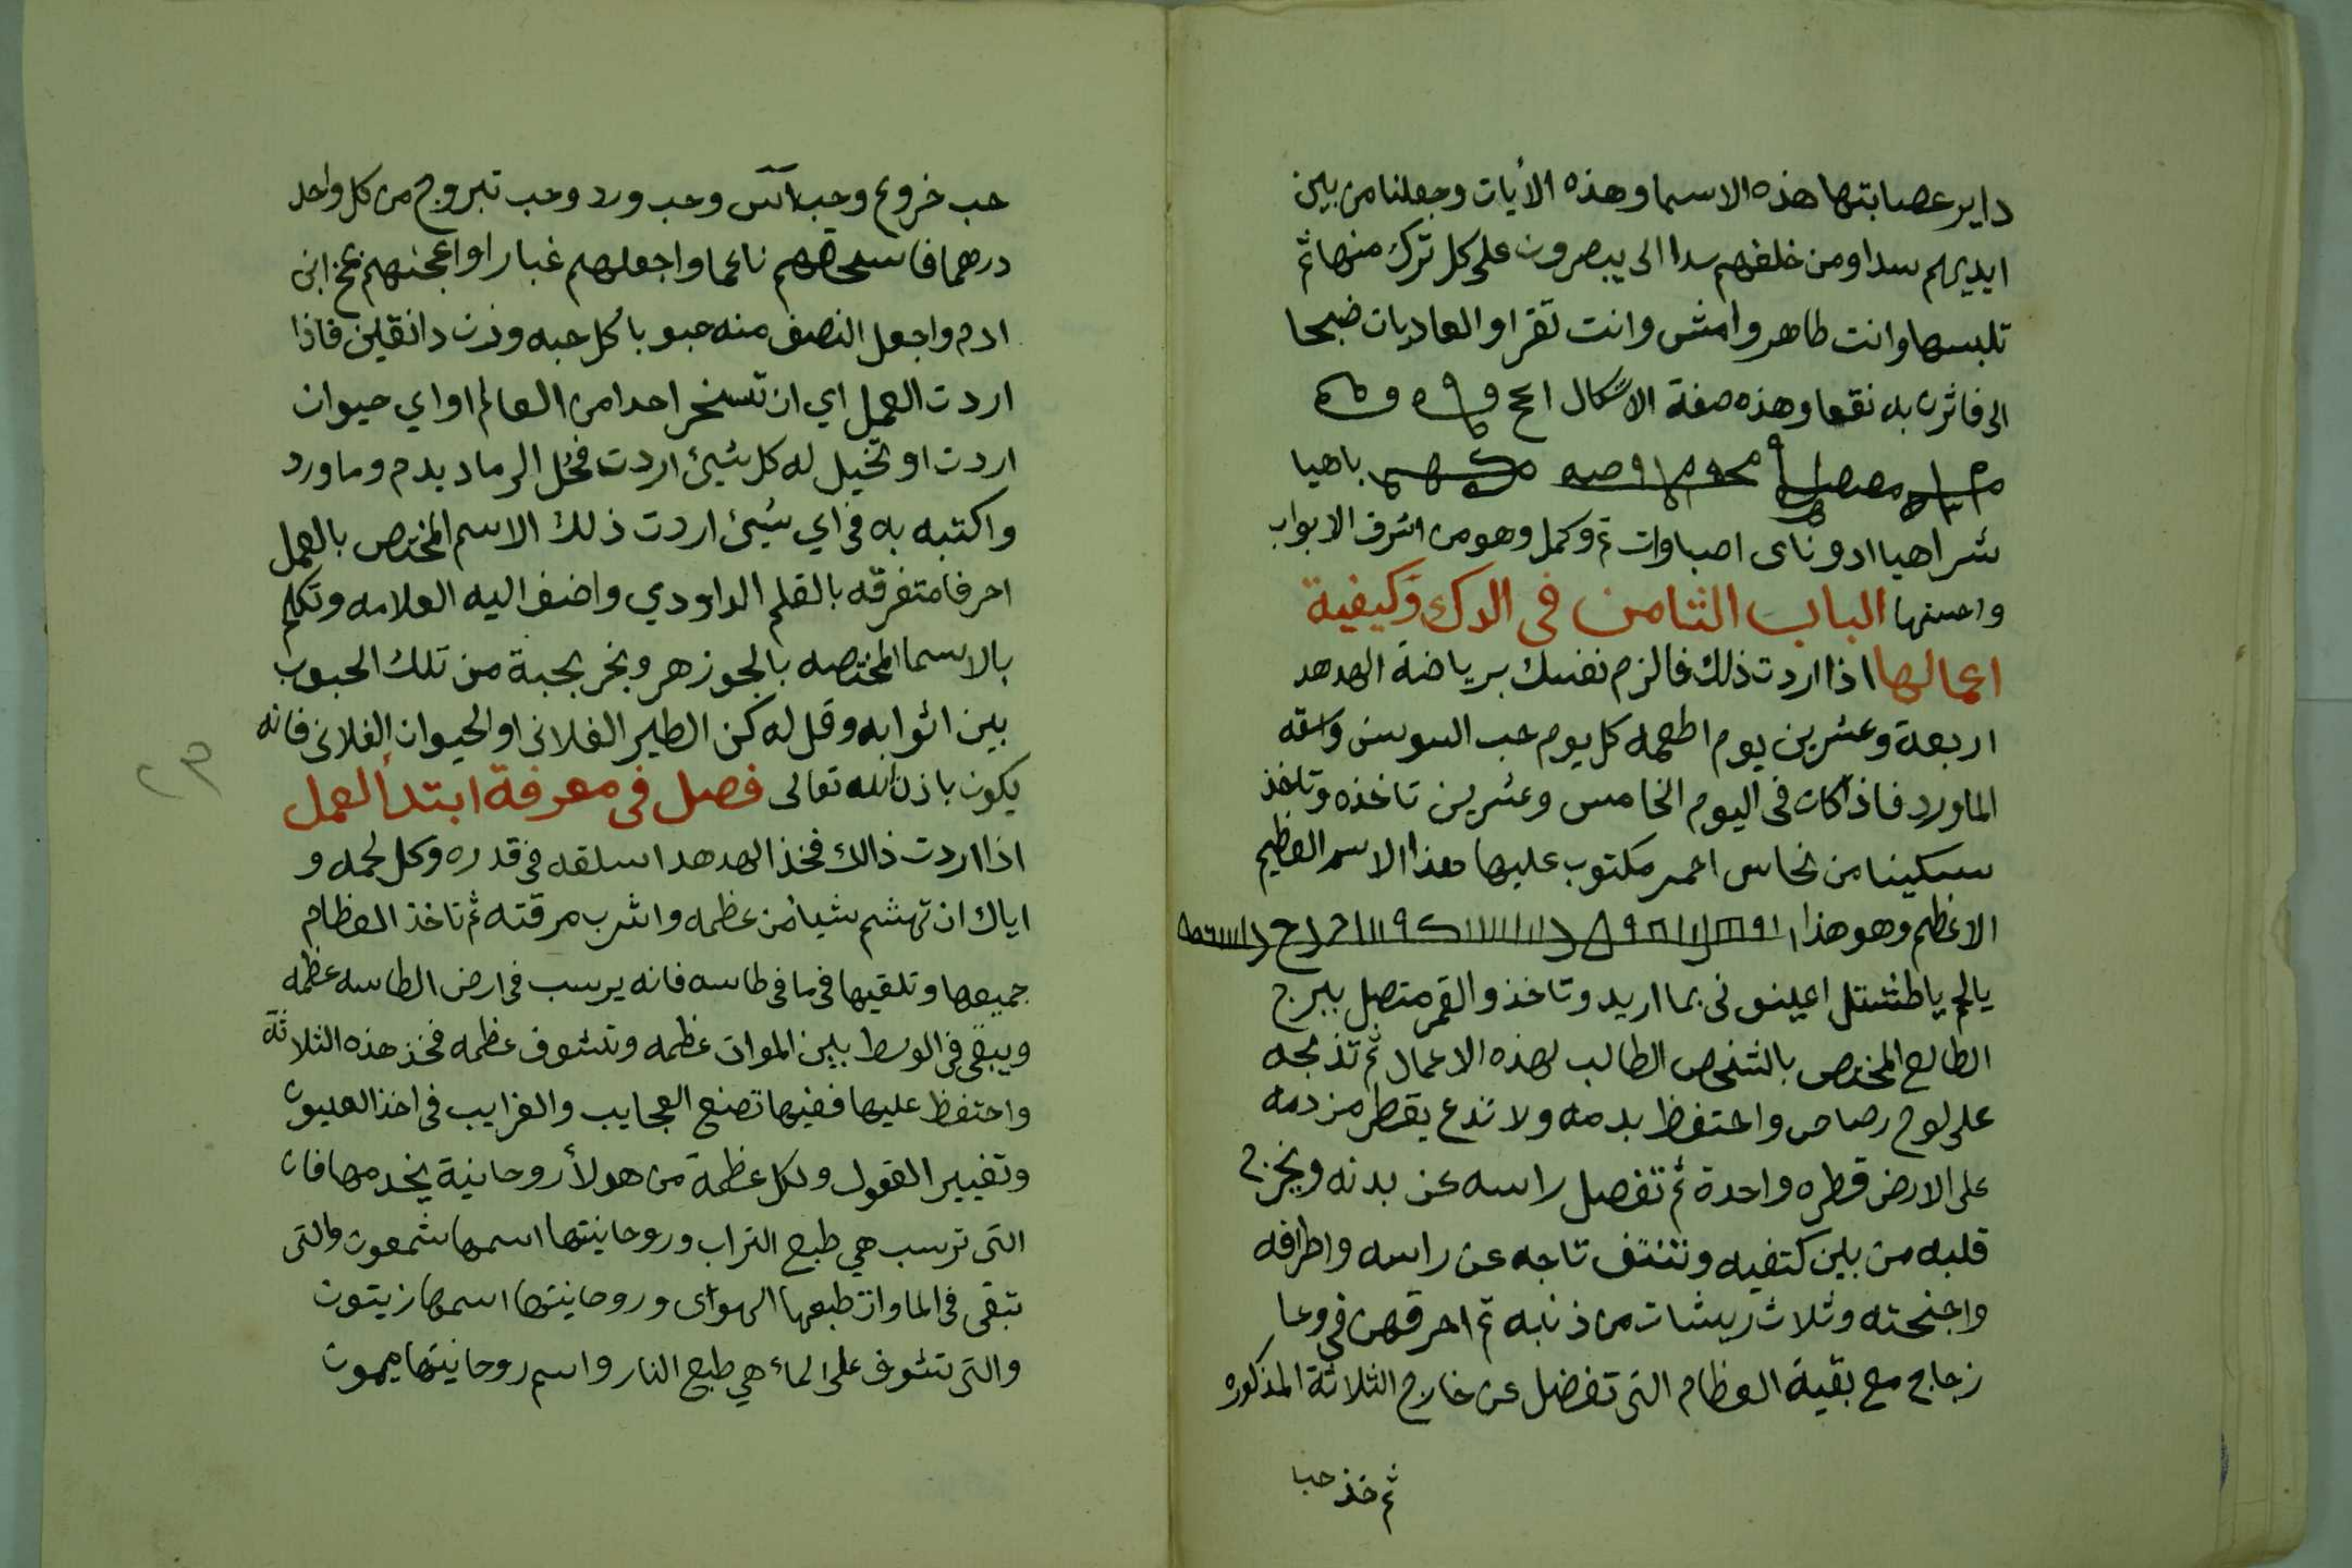 داير عصابتها هذه الاسما وهذه الأيات وجعلنا من بين
ايديهم سدا ومن خلفهم سدا الى يبصرون على كل ترك منها ثم
تلبسها وانت طاهر وامش وانت تقرا والعاديات ضبحا
الى فاثرن به نقعا وهذه صفة الاشكال
باهيا
شراهيا ادوناى اصباوات تم وكمل وهو من اشرف الابواب
واحسنها الباب الثامن فى الدك وكيفية
اعمالها اذا اردت ذلك فالزم نفسك برياضة الهدهد
اربعة وعشرين يوم اطعمه كل يوم حب السوسن واسقه
الماورد فاذا كان فى اليوم الخامس وعشرين تاخذه وتاخذ
سكينا من نحاس احمر مكتوب عليها هذا الاسم العظيم
الاعظم وهو هذا
اعينونى بما اريد وتاخذ والقمر متصل ببرج
الطالع المختص بالشخص الطالب لهذه الاعمال ثم تذبحه
على لوح رصاص واحتفظ بدمه ولا تدع يقطر من دمه
على الارض قطره واحدة ثم تفصل راسه عن بدنه وتخرج
قلبه من بين كتفيه وتنتف تاجه عن راسه واطرافه
واجنحته وثلاث ريشات من ذنبه ثم احرقهن فى وعا
زجاج مع بقية العظام التى تفضل عن خارج الثلاثة المذكوره
ثم خذ حبا
حب خروع وحب اس وحب ورد وحب تبروج من كل واحد
درهما فاسحقهم ناعما واجعلهم غبارا واعجنهم بمخ ابن
ادم واجعل النصف منه حبوبا كل حبه وزن دانقين فاذا
اردت العمل اي ان تسخر احدا من العالم او اي حيوان
اردت او تخيل له كل شيئ اردت فحل الرماد بدم وماورد
واكتبه به فى اي شيئ اردت ذلك الاسم المختص بالعمل
احرفا متفرقه بالقلم الداودي واضف اليه العلامه وتكلم
بالاسما المختصه بالجوزهر وبخر بحبة من تلك الحبوب
بين اثوابه وقل له كن الطير الفلانى او الحيوان الفلانى فانه
يكون باذن الله تعالى فصل فى معرفة ابتدأ العمل
اذا اردت ذالك فخذ الهدهد اسلقه فى قدره وكل لحمه و
اياك ان تهشم شيا من عظمه واشرب مرقته ثم تاخذ العظام
جميعها وتلقيها فى ما فى طاسه فانه يرسب فى ارض الطاسه عظمه
ويبقى فى الوسط بين الموات عظمه وتشوف عظمه فخذ هذه الثلاثة
واحتفظ عليها ففيها تصنع العجايب والغرايب فى اخذ العيون
وتغيير العقول ولكل عظمة من هولأ روحانية يخدمها فان
التى ترسب هي طبع التراب وروحانيتها اسمها شمعون والتى
تبقى فى الماوان طبعها الهواى وروحانيتها اسمها زيتون
والتى تشوف على الماء هي طبع النار واسم روحانيتها ميمون